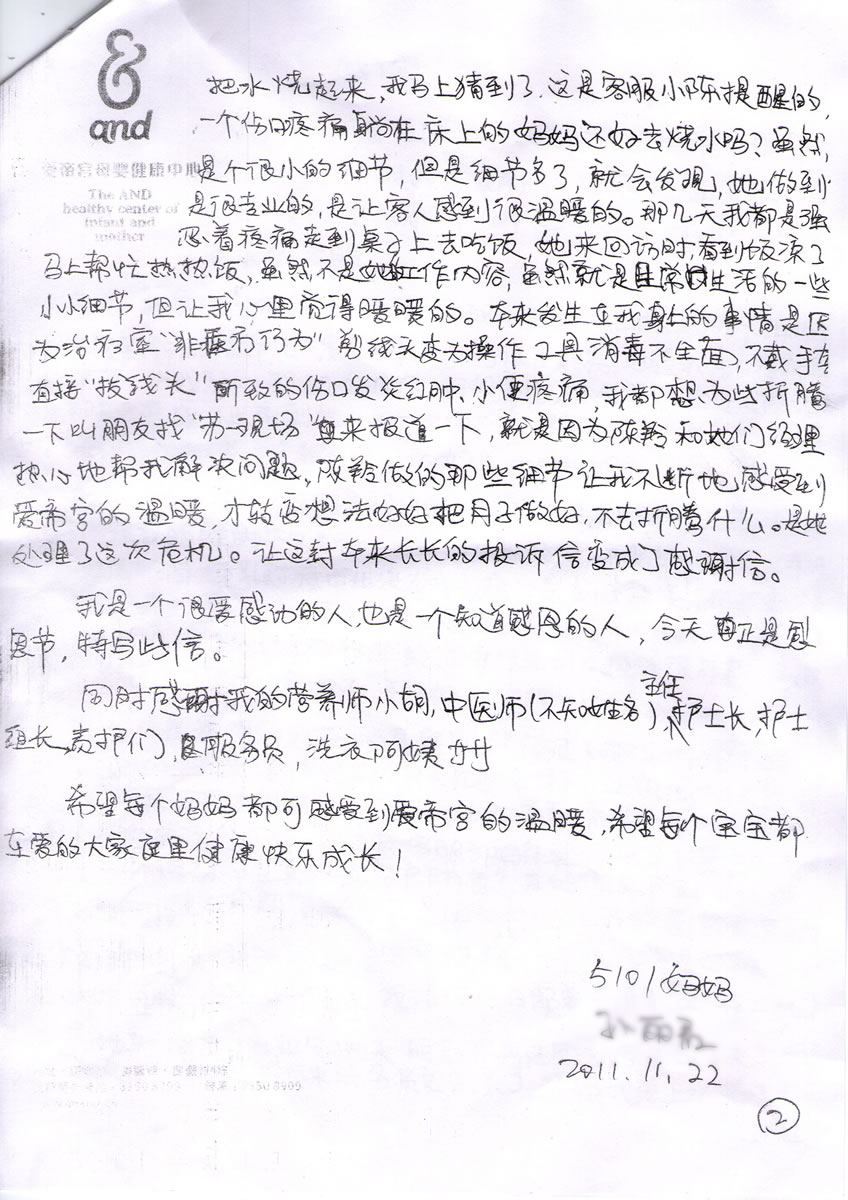 &
and
爱帝宫母婴健康中心
The AND
healthy center of
infant and
mother
把水烧起来，我马上猜到了，这是客服小陈提醒的，
一个伤口疼痛躺在床上的妈妈还好去烧水吗？虽然，
是个很小的细节，但是细节多了，就会发现，她做到
是很专业的，是让客人感到很温暖的。那几天我都是强
忍着疼痛走到桌子上去吃饭，她来回访时，看到饭凉了
马上帮忙热热饭，虽然不是她工作内容，虽然就是日常生活的一些
小小细节，但让我心里觉得暖暖的。本来发生在我身上的事情是因
为治疗室“非医疗行为”剪线头变为操作工具消毒不全面，不戴手套
直接“拔线头”所致的伤口发炎红肿，小便疼痛，我都想为些折腾
一下叫朋友找“第一现场”来报道一下，就是因为陈羚和她们经理
热心地帮我解决问题，陈羚做的那些细节让我不断地感受到
爱帝宫的温暖，才转变想法好好把月子做好，不去折腾什么。是她
处理了这次危机。让这封本来长长的投诉信变成了感谢信。
我是一个很爱感动的人，也是一个知道感恩的人，今天真正是感
恩节，特写此信。
同时感谢我的营养师小胡，中医师（不知姓名）主任，护士长，护士
组长，责护们，服务员，洗衣阿姨
希望每个妈妈都可感受到爱帝宫的温暖，希望每个宝宝都
在爱的大家庭里健康快乐成长！
5101妈妈
2011.11.22
②